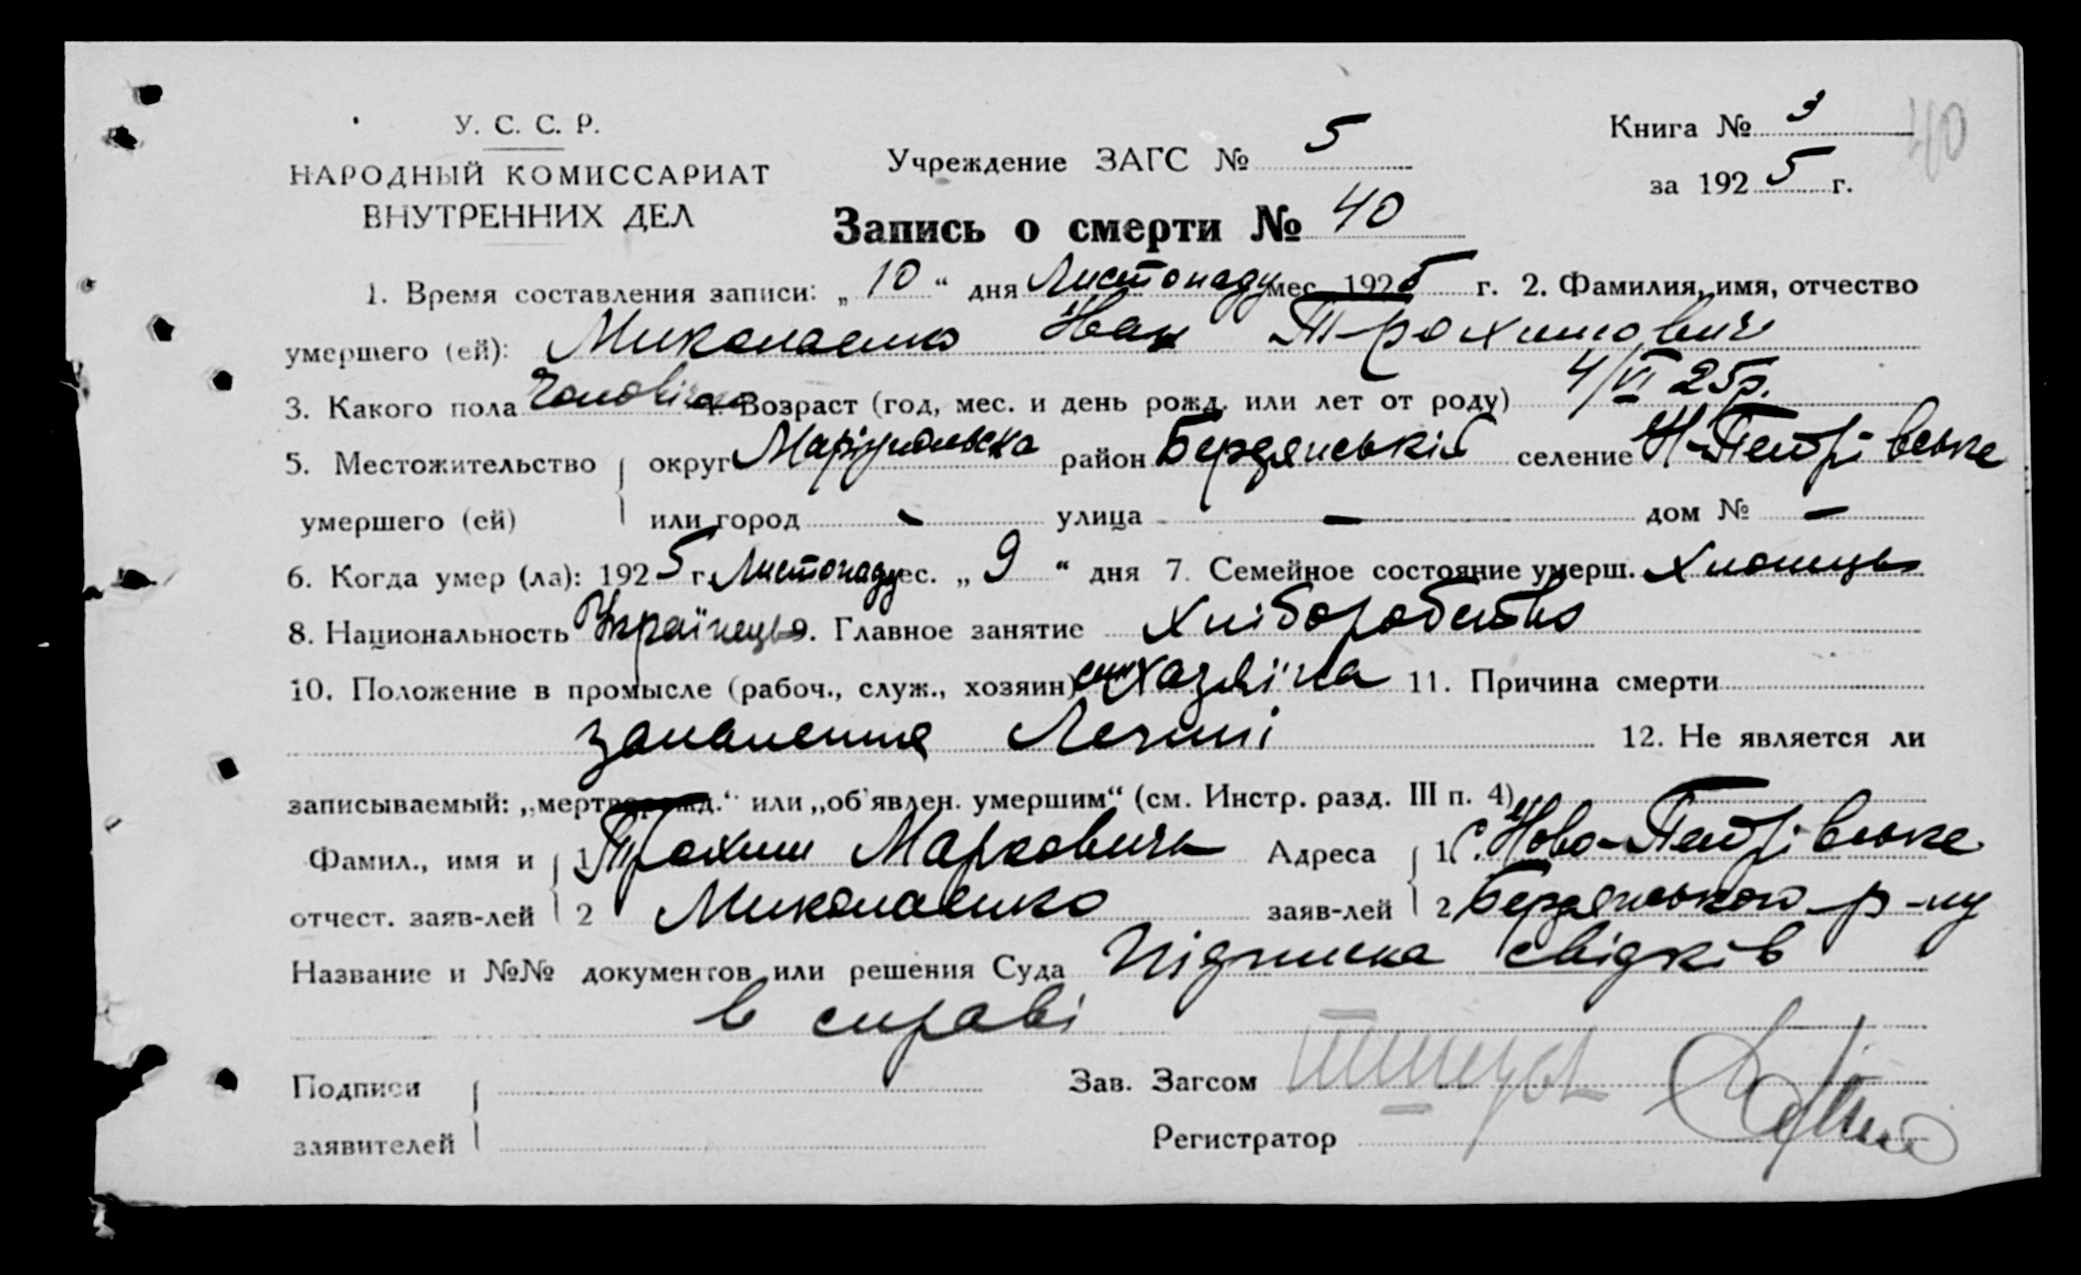 У. С. С. Р.
НАРОДНЫЙ КОМИССАРИАТ
ВНУТРЕННИХ ДЕЛ
Учреждение ЗАГС № 5
Книга № 3
40
за 1925 г.
Запись о смерти № 40
1. Время составления записи: „ 10 “ дня Листопаду мес. 1925 г. 2. Фамилия, имя, отчество
умершего (ей): Миколаенко Иван Трохимович
3. Какого пола Чоловіча 4. Возраст (год, мес. и день рожд. или лет от роду) 4/VI 25р.
5. Местожительство округ Маріупольська район Бердянській селение Н-Петрівське
умершего (ей) или город - улица - дом № -
6. Когда умер (ла): 1925 г. Листопаду мес. „ 9 “ дня 7. Семейное состояние умерш. Хлопець
8. Национальность Українець 9. Главное занятие Хліборобство
10. Положение в промысле (рабоч., служ., хозяин) син хазяїна 11. Причина смерти
запалення Легині 12. Не является ли
записываемый: „мертворожд.“ или „об'явлен. умершим“ (см. Инстр. разд. III п. 4)
Фамил., имя и 1 Трохим Маркович Адреса 1 с. Ново-Петрівське
отчест. заяв-лей 2 Миколаенко заяв-лей 2 Бердянського р-ну
Название и №№ документов или решения Суда Підписка свідків
в справі
Подписи Зав. Загсом
заявителей Регистратор